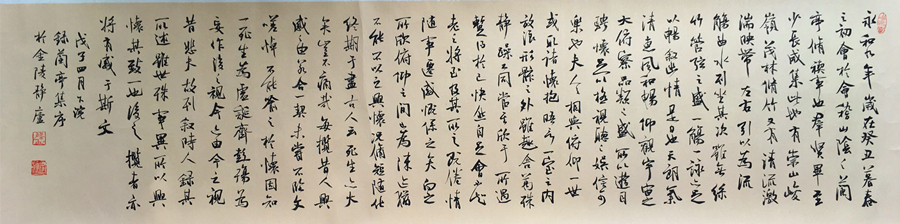 永和九年歲在癸丑暮春
之初會於會稽山陰之蘭
亭脩禊事也羣賢畢至
少長咸集此地有崇山峻
嶺茂林脩竹又有清流激
湍映帶左右引以為流
觴曲水列坐其次雖無絲
竹管弦之盛一觴一詠亦足
以暢敘幽情是日也天朗氣
清惠風和暢仰觀宇宙之
大俯察品類之盛所以遊目
騁懷足以極視聽之娛信可
樂也夫人之相與俯仰一世
或取諸懷抱晤言一室之內
放浪形骸之外雖趣舍萬殊
靜躁不同當其欣於所遇
暫得於己快然自足不知
老之將至及其所之既倦情
隨事遷感慨係之矣向之
所欣俯仰之間已為陳迹猶
不能不以之興懷况脩短隨化
終期於盡古人云死生亦大
矣豈不痛哉每攬昔人興
感之由若合一契未嘗不臨文
嗟悼不能喻之於懷固知
一死生為虛誕齊彭殤為
妄作後之視今亦由今之視
昔悲夫故列敘時人錄其
所述雖世殊事異所以興
懷其致一也後之攬者亦
將有感於斯文
戊子四月下浣
錄蘭亭集序
於金陵靜廬